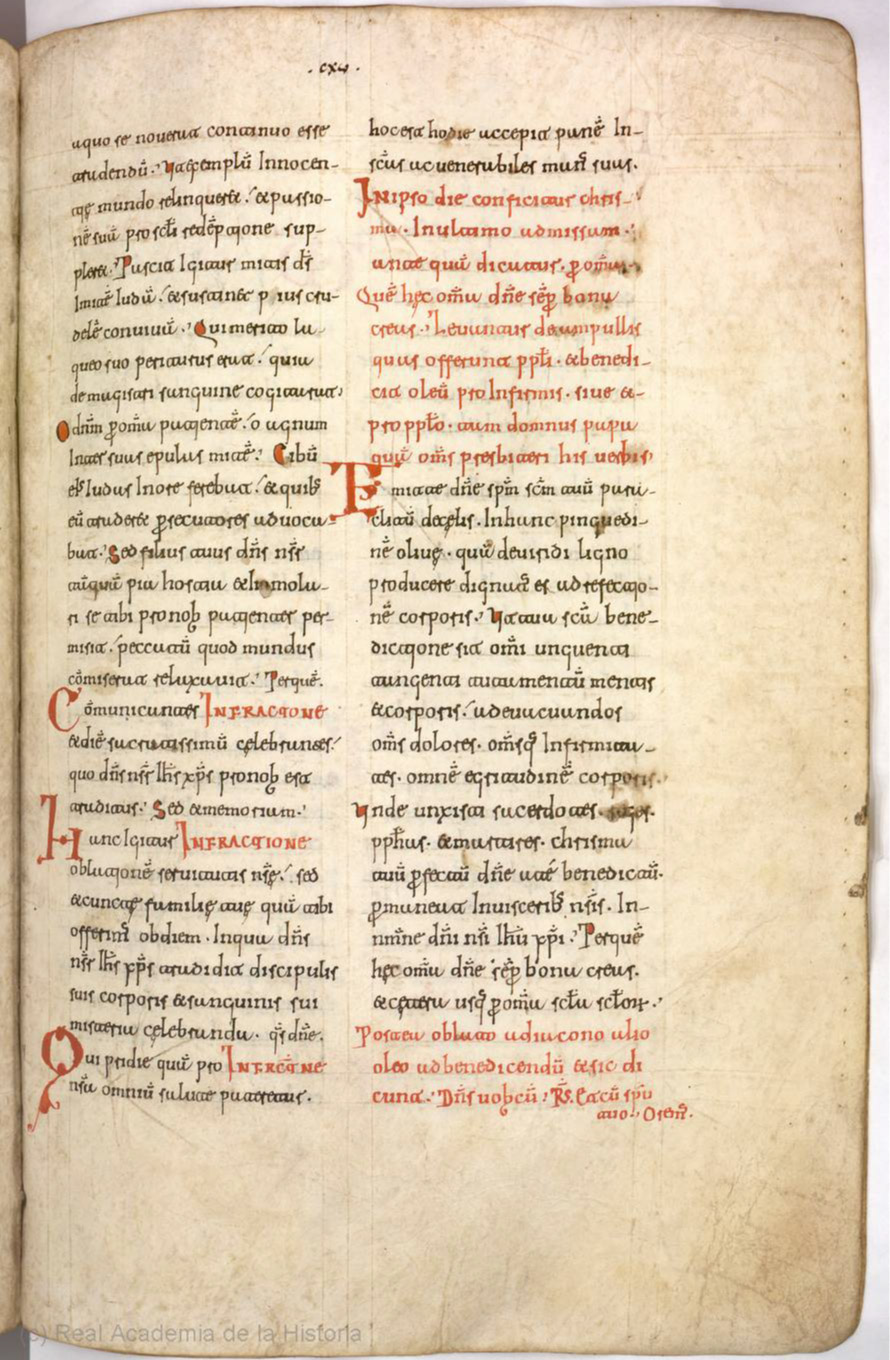 .cxv.
aquo se noverat continuo esse
tradendū. Ut exemplū Innocen-
tię mundo relinqueret. et passio-
nē suā pro scłi redēptione sup-
pleret. Pascit Igitur mitis ds̄
Inmitē Iudā. et sustinet pius cru-
delē convivā. Qui merito la-
queo suo periturus erat. quia
de magistri sanguine cogitarat.
O dn̄m ꝑ omīa patientē. o agnum
Inter suas epulas mitē. Cibū
ei' Iudas In ore ferebat. et quib'
eū traderet ꝑsecutores advoca-
bat. Sed filius tuus dn̄s nr̄
tāquā pia hostia et Immola-
ri se tibi pro nob' patienter per-
misit. peccatū quod mundus
cōmiserat relaxavit. Perquē.
Cōmunicantes INFRACTIONE
et diē sacratissimū cęlebrantes.
quo dn̄s nr̄ ihs̄ xps̄ pro nob' est
traditus. Sed et memoriam.
Hunc Igitur INFRACTIONE
oblationē servitutis nrē. sed
et cunctę familię tuę quā tibi
offerim' ob diem. In qua dn̄s
nr̄ ihs̄ xps̄ tradidit discipulis
suis corporis et sanguinis sui
misteria cęlebranda. qs̄ dn̄e.
Qui pridie quā pro INFRACTIONE
nrā omniū salute pateretur.
hoc est hodie accepit panē In
scās ac venerabiles man' suas.
In ipso die conficitur chris-
ma. In ultimo ad missam.
ante quā dicatur. ꝑ omīa
Quē hęc omīa dn̄e sēꝑ bona
creas. Levantur de ampullis
quas offerunt ppłi. et benedi-
cit oleū pro Infirmis. sive et
pro ppło. tam domnus papa
quā oms̄ presbiteri his verbis
Emitte dn̄e spm̄ scm̄ tuū para-
clitū de cęlis. In hanc pinguedi-
nē olivę. quā de viridi ligno
producere dignat' es ad refectio-
nē corporis. Ut tua scā bene-
dictione sit omī unguenti
tangenti tutamentū mentis
et corporis. ad evacuandos
oms̄ dolores. oms̄q; Infirmita-
tes. omnē egritudinē corporis.
Unde unxisti sacerdotes. reges.
ppħas. et martires. chrisma
tuū ꝑfectū dn̄e a te benedictū.
ꝑmaneat In viscerib' nrīs. In
nmīne dnī nrī ihū xpī. Perquē
hęc omīa dn̄e sēꝑ bona creas.
et cętera usq; ꝑ omīa scłu scłor.
Postea oblato a diacono alio
oleo ad benedicendū et sic di
cunt. Dn̄s vobcū. R. Et cū spū
tuo. Orem'.
(c) Real Academia de la Historia